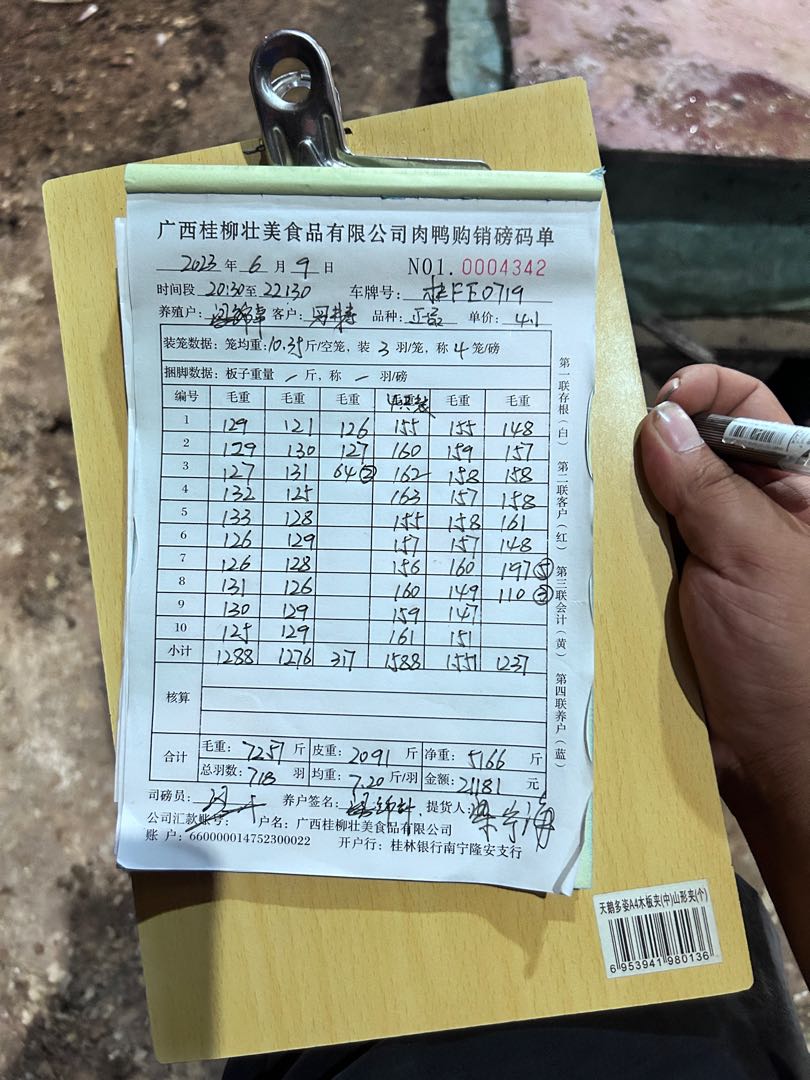 广西桂柳壮美食品有限公司肉鸭购销磅码单
2023 年 6 月 9 日 NO1. 0004342
时间段 20:30 至 22:30 车牌号: 桂FE0719
养殖户: 客户: 品种: 正品 单价: 4.1
装笼数据: 笼均重: 10.35 斤/空笼, 装 3 羽/笼, 称 4 笼/磅
捆脚数据: 板子重量 - 斤, 称 - 羽/磅
编号 毛重 毛重 毛重 毛重 毛重
1 129 121 126 155 155 148
2 129 130 127 160 159 157
3 127 131 64② 162 158 158
4 132 125 163 157 158
5 133 128 155 158 161
6 126 129 157 157 148
7 126 128 156 160 197⑤
8 131 126 160 149 110③
9 130 129 159 147
10 125 129 161 151
小计 1288 1276 317 1588 1551 1237
核算
合计 毛重: 7257 斤 皮重: 2091 斤 净重: 5166 斤
总羽数: 718 羽 均重: 7.20 斤/羽 金额: 21181 元
司磅员: 养户签名: 提货人:
公司汇款账号: 户名: 广西桂柳壮美食品有限公司
账 户: 660000014752300022 开户行: 桂林银行南宁隆安支行
第一联存根(白) 第二联客户(红) 第三联会计(黄) 第四联养户(蓝)
天鹅多姿A4木板夹(中)山形夹(个)
6 953941 980136